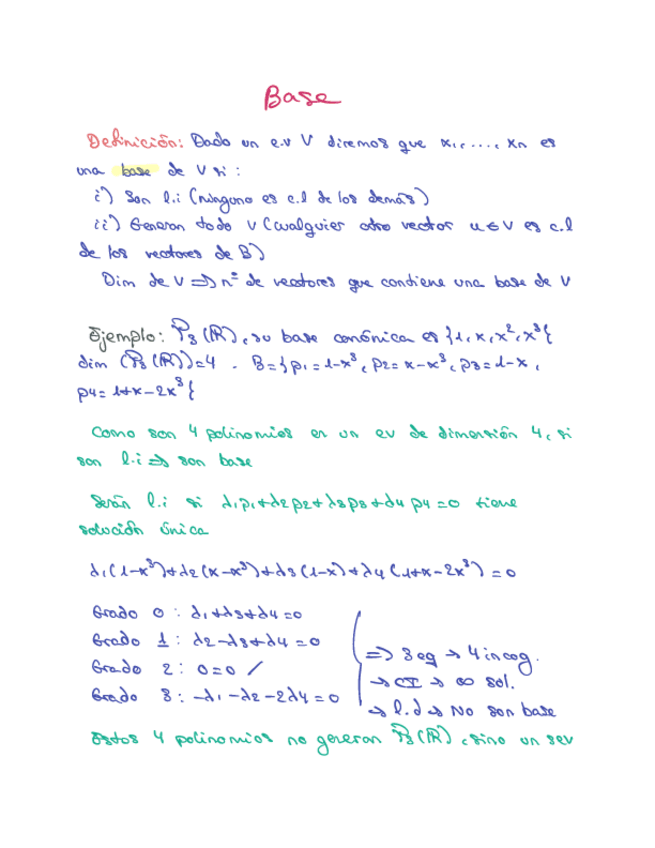 Base
Definición: Dado un e.v V diremos que x₁, ..., xn es
una base de V si:
i) Son l.i (ninguno es c.l de los demás)
ii) Generan todo V (cualquier otro vector u∈V es c.l
de los vectores de B)
Dim de V => nº de vectores que contiene una base de V
Ejemplo: P₃(ℝ), su base canónica es {1, x, x², x³}
dim (P₃(ℝ))=4 . B={p₁=1-x³, p₂=x-x³, p₃=1-x,
p₄=1+x-2x³}
Como son 4 polinomios en un ev de dimensión 4, si
son l.i => son base
Serán l.i si λ₁p₁+λ₂p₂+λ₃p₃+λ₄p₄=0 tiene
solución única
λ₁(1-x³)+λ₂(x-x³)+λ₃(1-x)+λ₄(1+x-2x³)=0
Grado 0: λ₁+λ₃+λ₄=0
Grado 1: λ₂-λ₃+λ₄=0
Grado 2: 0=0 /
Grado 3: -λ₁-λ₂-2λ₄=0
=> 3 eq → 4 incog.
→ CI → ∞ sol.
→ l.d → No son base
Estos 4 polinomios no generan P₃(ℝ), sino un sev